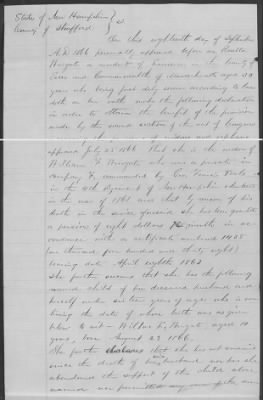 State of New Hampshire }
County of Strafford } ss
On this eighteenth day of September
A.D. 1866 personally appeared before me
Wingate a resident of in the County of
Essex and Commonwealth of Massachusetts aged 30
years who being first duly sworn according to law
doth on her oath make the following declaration
in order to obtain the benefit of the provision
made by the second section of the act of Congress
approved July 25 1866 That she is the widow of
William F. Wingate who was a private in
Company F, commanded by Cap
in the 4th Regiment of New Hampshire
in the war of 1861 and that by reason of his
death in the service aforesaid she has been granted
a pension of eight dollars per month in ac-
cordance with a certificate numbered 1438
(one thousand four hundred and thirty eight)
bearing date April eighth 1863
She further swears that she has the following
named child of her deceased husband and
herself under sixteen years of age who is now
living the date of whose birth was as given
below to wit - Wilbur L. Wingate aged 10
years, born August 23 1866.
She further declares that she has not remarried
since the death of her husband nor has she
abandoned the support of the child above
named nor permitted any one of the same